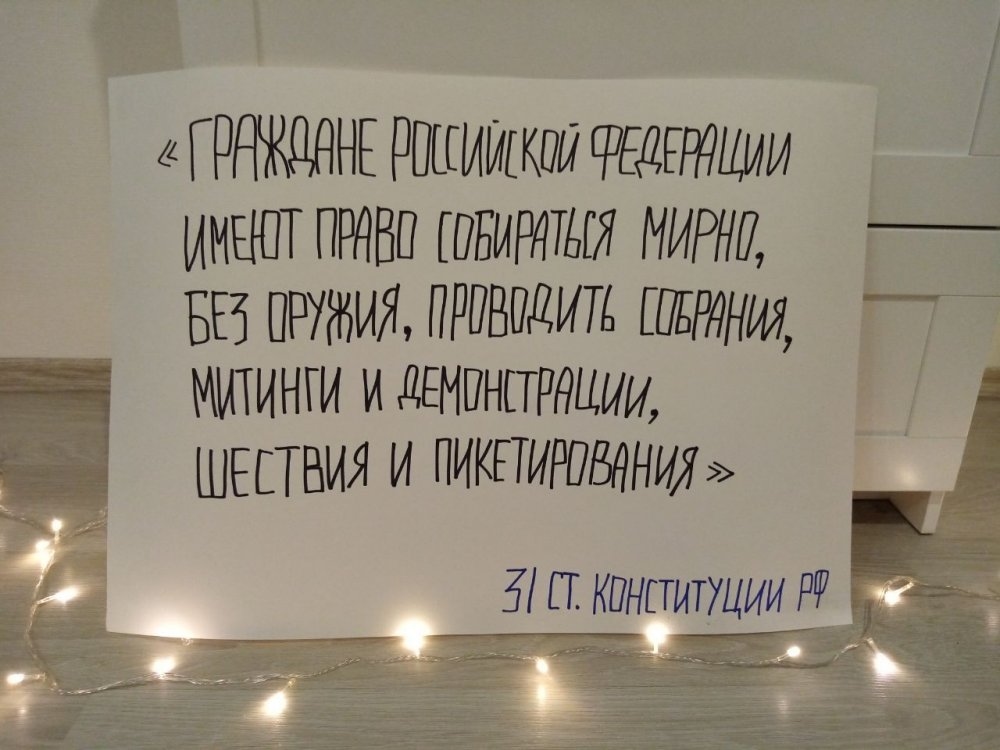 «ГРАЖДАНЕ РОССИЙСКОЙ ФЕДЕРАЦИИ
ИМЕЮТ ПРАВО СОБИРАТЬСЯ МИРНО,
БЕЗ ОРУЖИЯ, ПРОВОДИТЬ СОБРАНИЯ,
МИТИНГИ И ДЕМОНСТРАЦИИ,
ШЕСТВИЯ И ПИКЕТИРОВАНИЯ»
31 СТ. КОНСТИТУЦИИ РФ